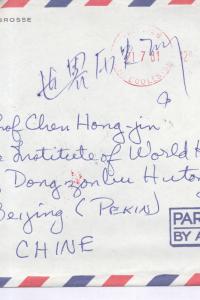 GROSSE
世界历史所
rof Chen Hong-jin
Institute of World H
Dong-zonbu Hutong
Beijing (PEKIN)
CHINE
PAR
BY A